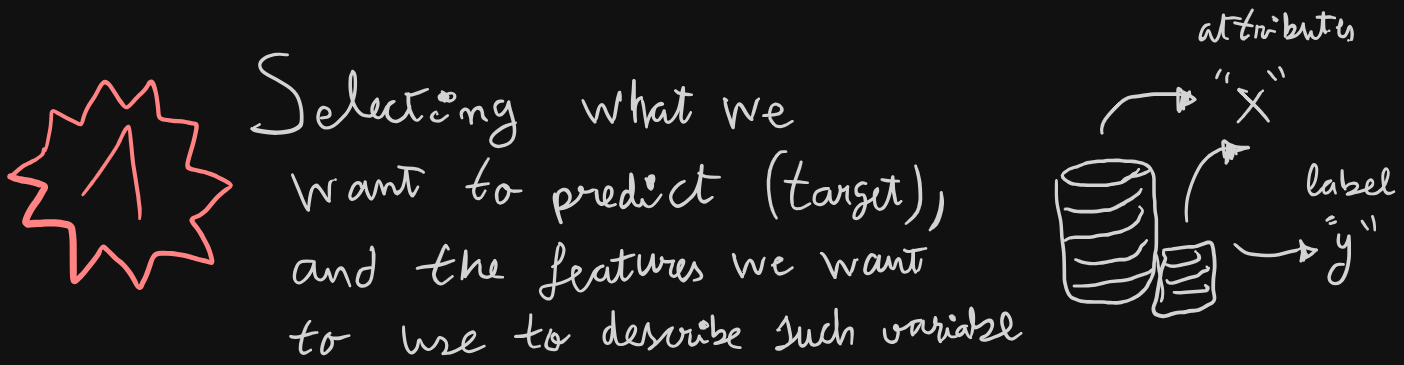 1
Selecting what we
want to predict (target),
and the features we want
to use to describe such variable
attributes
"X"
label
"y"